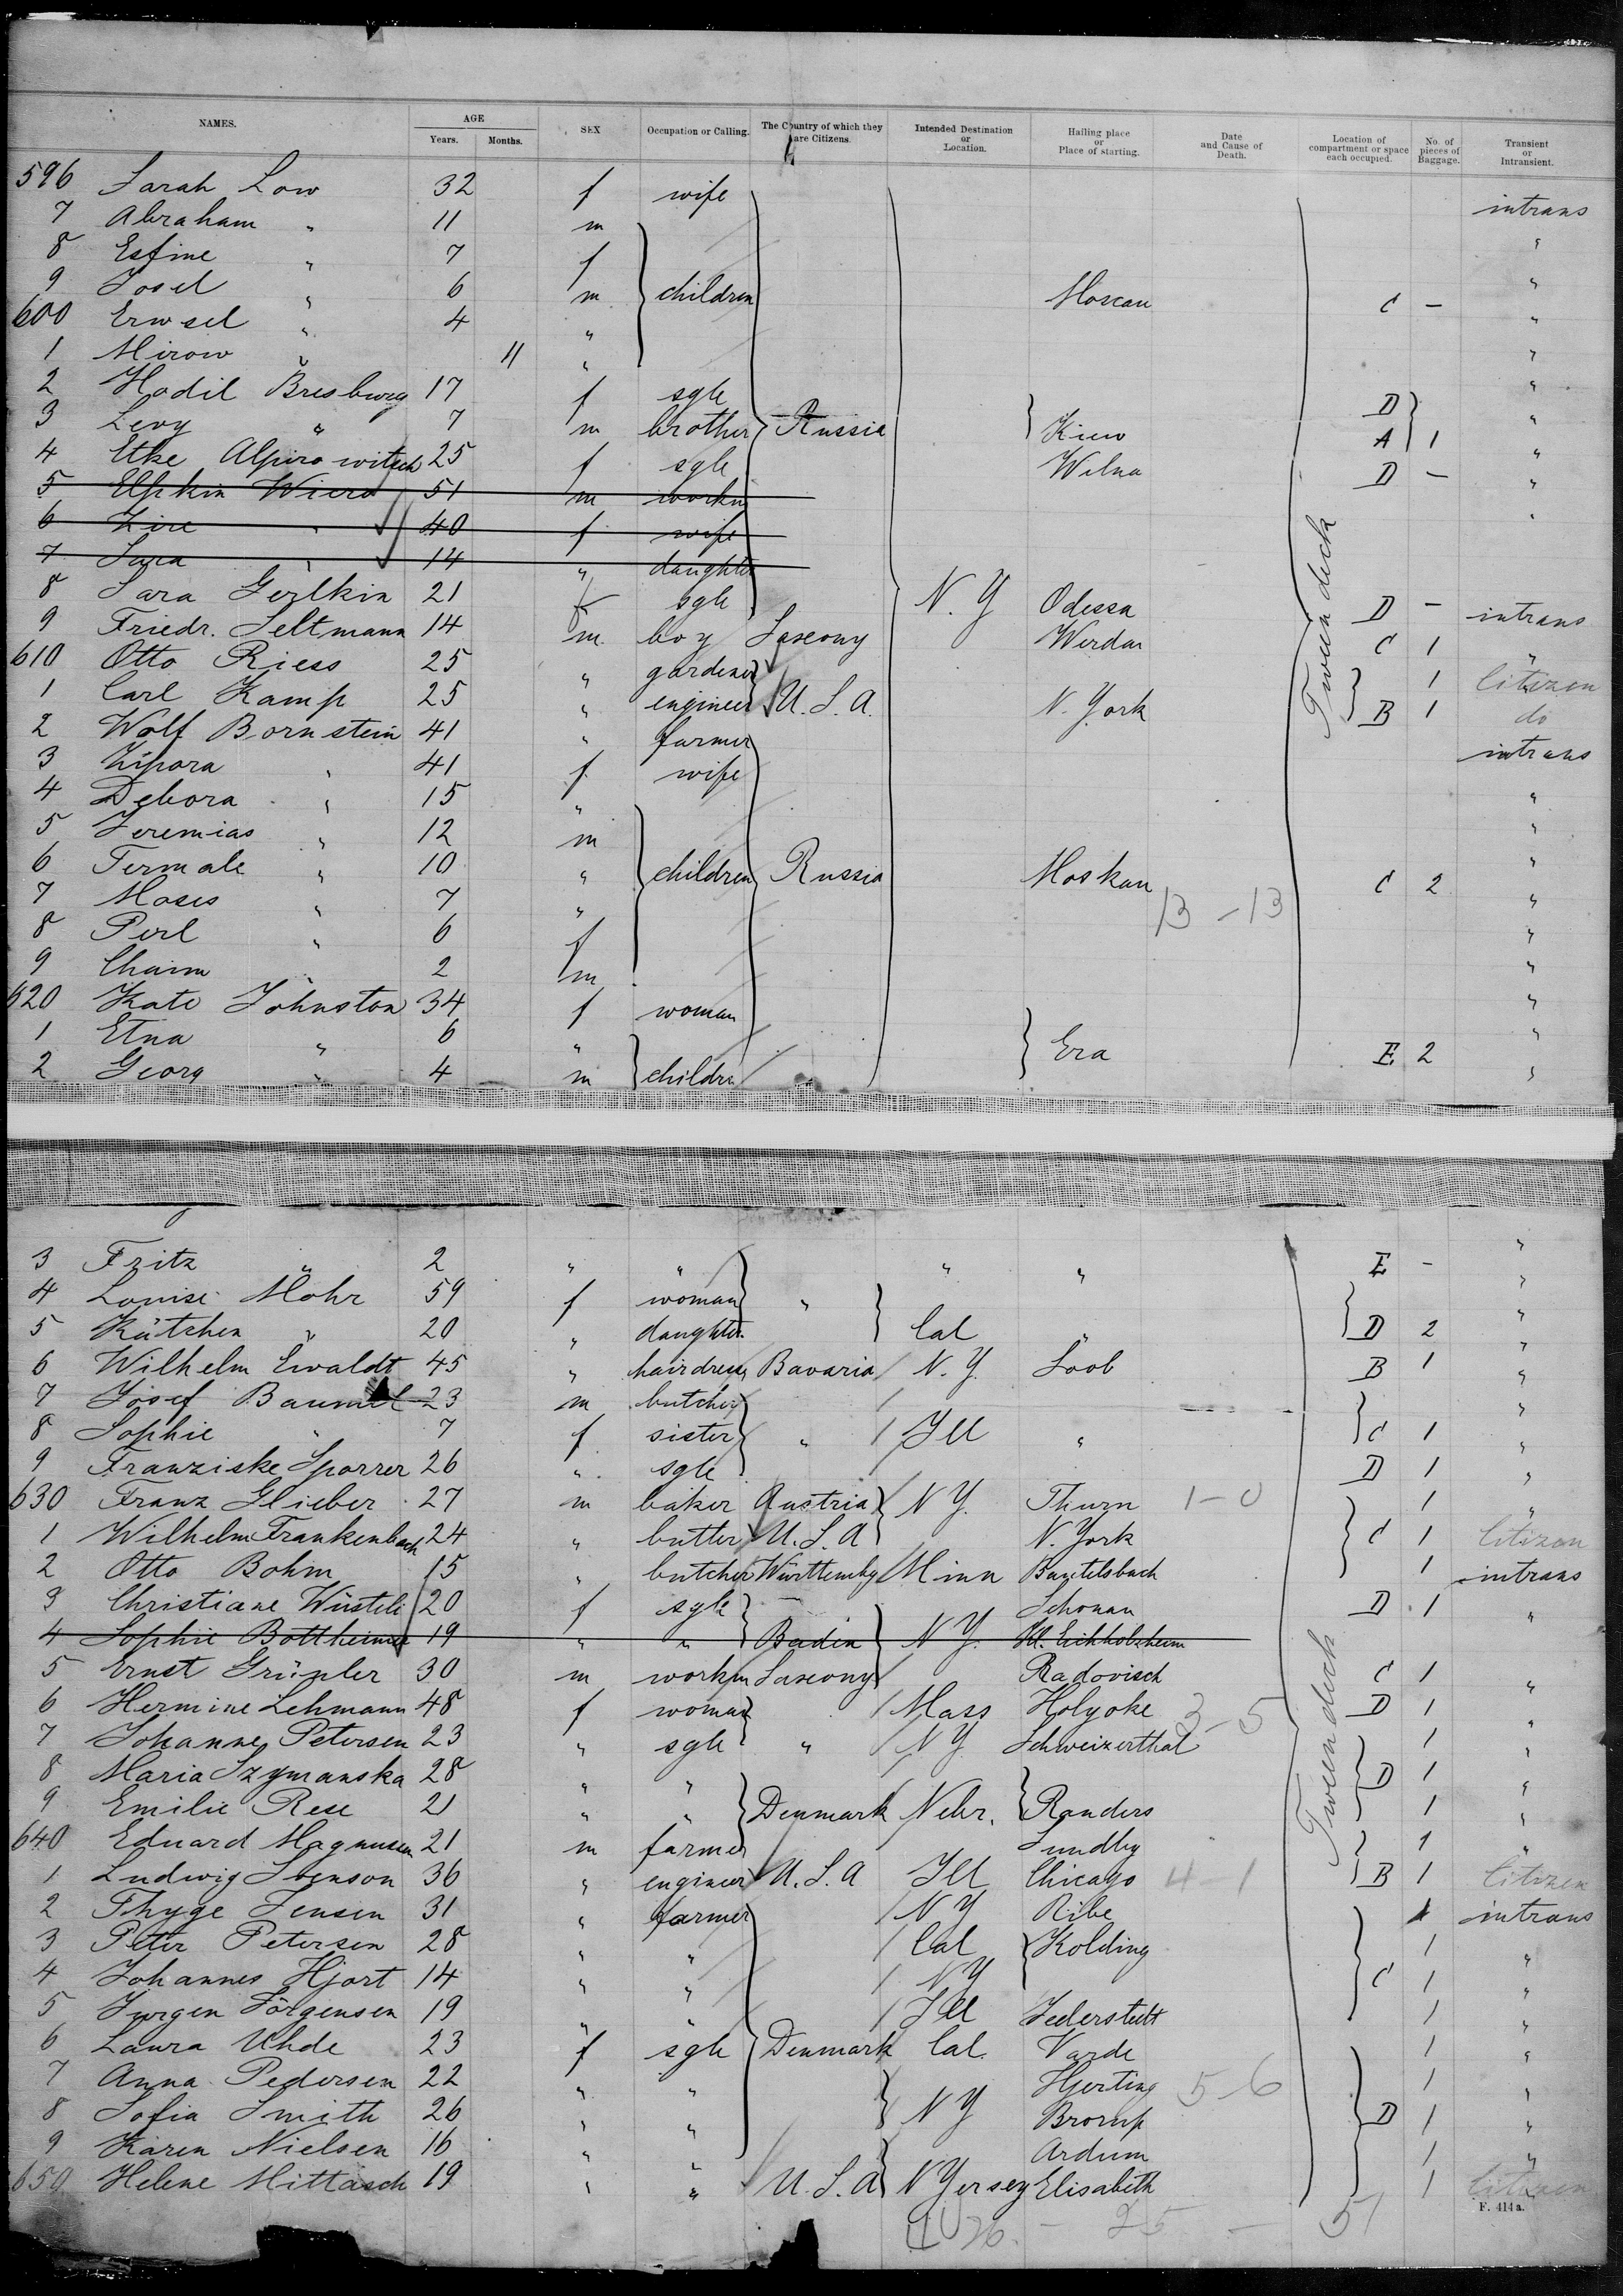 NAMES. AGE Years. Months. SEX Occupation or Calling. The Country of which they are Citizens. Intended Destination or Location. Hailing place or Place of starting. Date and Cause of Death. Location of compartment or space each occupied. No. of pieces of Baggage. Transient or Intransient.
596 Sarah Low 32 f wife intrans
7 Abraham " 11 m "
8 Esfine " 7 f "
9 Josel " 6 m children Moscau C - "
600 Erwsel " 4 " "
1 Mirow " 11 " "
2 Hodil Bresburg 17 f sgle D "
3 Levy " 7 m brother Russia Kiew A 1 "
4 Etke Alpirowitsch 25 f sgle Wilna D - "
5 Elpkin Wierd 51 m workm "
6 Zire " 40 f wife "
7 Sara " 14 " daughter
8 Sara Gerlkin 21 f sgle N. Y Odessa Tween deck D - intrans
9 Friedr. Seltmann 14 m boy Saxony Werdau C 1 "
610 Otto Riess 25 " gardener 1 Citizen
1 Carl Kamp 25 " engineer U. S. A. N. York B 1 do
2 Wolf Bornstein 41 " farmer intrans
3 Zipora " 41 f wife "
4 Debora " 15 " "
5 Jeremias " 12 m "
6 Termale " 10 " children Russia Moskau C 2 "
7 Moses " 7 " 13 - 13 "
8 Perl " 6 f "
9 Chaim " 2 m "
620 Kate Johnston 34 f woman "
1 Etna " 6 " Era E 2 "
2 Georg " 4 m childre "
3 Fritz " 2 " " " " E - "
4 Louise Mohr 59 f woman " "
5 Kätchen " 20 " daughter Cal " D 2 "
6 Wilhelm Ewaldt 45 " hairdress Bavaria N. Y. Loob B 1 "
7 Josef Baumel 23 m butcher "
8 Sophie " 7 f sister " Ill " C 1 "
9 Franziske Sporrer 26 " sgle D 1 "
630 Franz Glieber 27 m baker Austria N Y. Thurn 1 - 0 1 "
1 Wilhelm Frankenbach 24 " butler U. S. A N. York C 1 Citizen
2 Otto Bohm 15 " butcher Württembg Minn Bautelsbach 1 intrans
3 Christiane Wüsteli 20 f sgle Schonau D 1 "
4 Sophie Bottheimer 19 " " Baden N Y. Kl. Eichholzheim
5 Ernst Grünler 30 m workm Saxony Radovisch C 1 "
6 Hermine Lehmann 48 f woman Mass Holyoke 3 - 5 D 1 "
7 Johanne Petersen 23 " sgle " N Y Schweizerthal 1 "
8 Maria Szymanska 28 " " Tween deck D 1 "
9 Emilie Rese 21 " " Denmark Nebr. Randers 1 "
640 Eduard Magnusen 21 m farmer Sundby 1 "
1 Ludwig Svenson 36 " engineer U. S. A Ill Chicago 4 - 1 B 1 Citizen
2 Thyge Jensen 31 " farmer N Y Ribe 1 intrans
3 Peter Petersen 28 " " Cal Kolding 1 "
4 Johannes Hjort 14 " " N Y C 1 "
5 Jurgen Jörgensen 19 " " Ill Jederstedt 1 "
6 Laura Uhde 23 f sgle Denmark Cal. Varde 1 "
7 Anna Pedersen 22 " " Hjerting 5 - 6 1 "
8 Sofia Smith 26 " " N Y Brorup D 1 "
9 Karen Nielsen 16 " " Ardum 1 "
650 Helene Mittasch 19 " " U. S. A N Yersey Elisabeth 1 Citizen
F. 414 a.
26 - 25 - 51